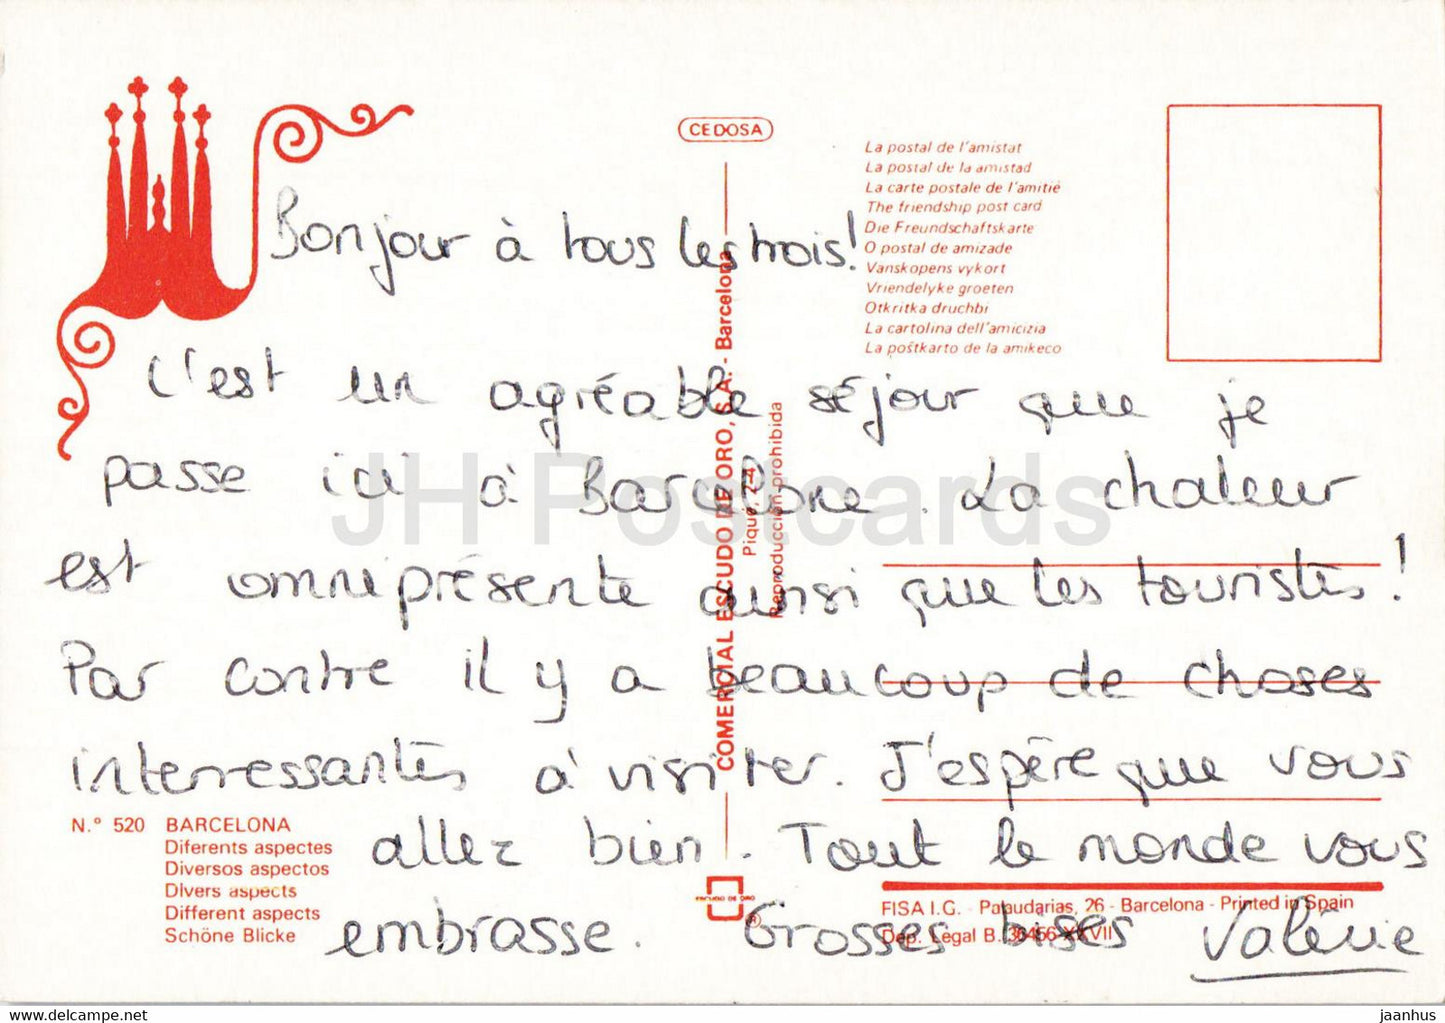 CEDOSA
La postal de l'amistat
La postal de la amistad
La carte postale de l'amitié
The friendship post card
Die Freundschaftskarte
O postal de amizade
Vanskopens vykort
Vriendelyke groeten
Otkritka druchbi
La cartolina dell'amicizia
La poŝtkarto de la amikeco
Bonjour à tous les trois!
C'est un agréable séjour que je
passe ici à Barcelone. La chaleur
est omniprésente ainsi que les touristes!
Par contre il y a beaucoup de choses
interressantes à visiter. J'espère que vous
allez bien. Tout le monde vous
embrasse. Grosses bises Valérie
COMERCIAL ESCUDO DE ORO, S.A. - Barcelona
Piqué, 2-4
Reproducción prohibida
N.° 520 BARCELONA
Diferents aspectes
Diversos aspectos
Divers aspects
Different aspects
Schöne Blicke
ESCUDO DE ORO
®
FISA I.G. - Palaudarias, 26 - Barcelona - Printed in Spain
Dep. Legal B. 36456-XXVII
JH Postcards
www.hippostcard.com/store/jhpostcards.com
jaanhus